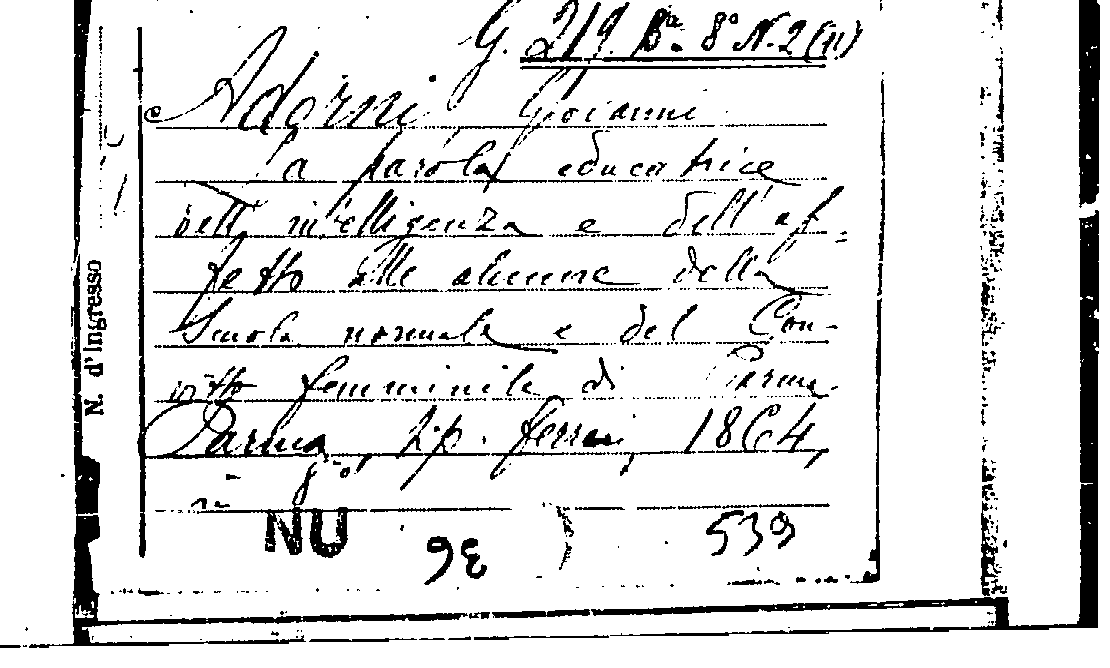 G. 219. Ba. 8° N. 2 (11)
Adorni, Giovanni
la parola educatrice
dell' intelligenza e dell' af-
fetto alle alunne della
Scuola normale e del Con-
vitto femminile di Parma.
Parma, tip. ferrari, 1864,
in
NU 93 539
N. d'Ingresso